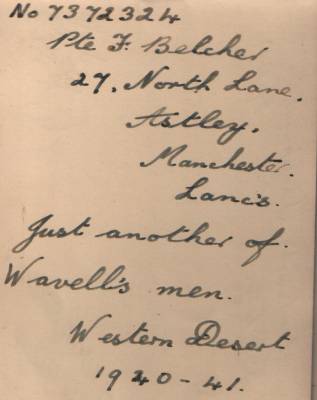 No 7372324
Pte F. Belcher
27, North Lane.
Astley,
Manchester.
Lancs.
Just another of.
Wavell's men.
Western Desert
1940-41.